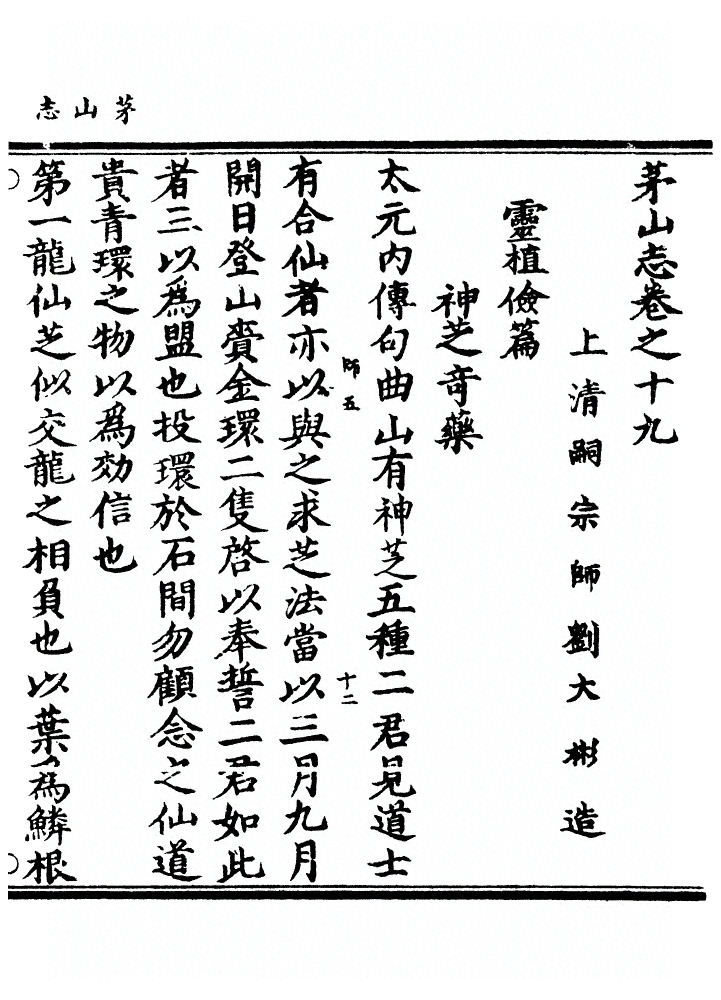 茅山志
茅山志卷之十九
上清嗣宗師劉大彬造
靈植儉篇
神芝奇藥
太元内傳句曲山有神芝五種二君見道士
師五
十二
有合仙者亦以與之求芝法當以三月九月
開日登山賫金環二隻啓以奉誓二君如此
者三以爲盟也投環於石間勿顧念之仙道
貴青環之物以爲効信也
第一龍仙芝似交龍之相負也以葉爲鱗根